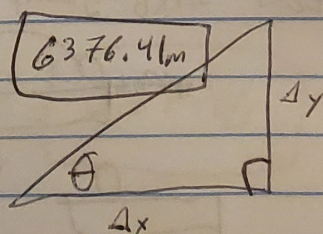 6376.41m
Δy
θ
Δx